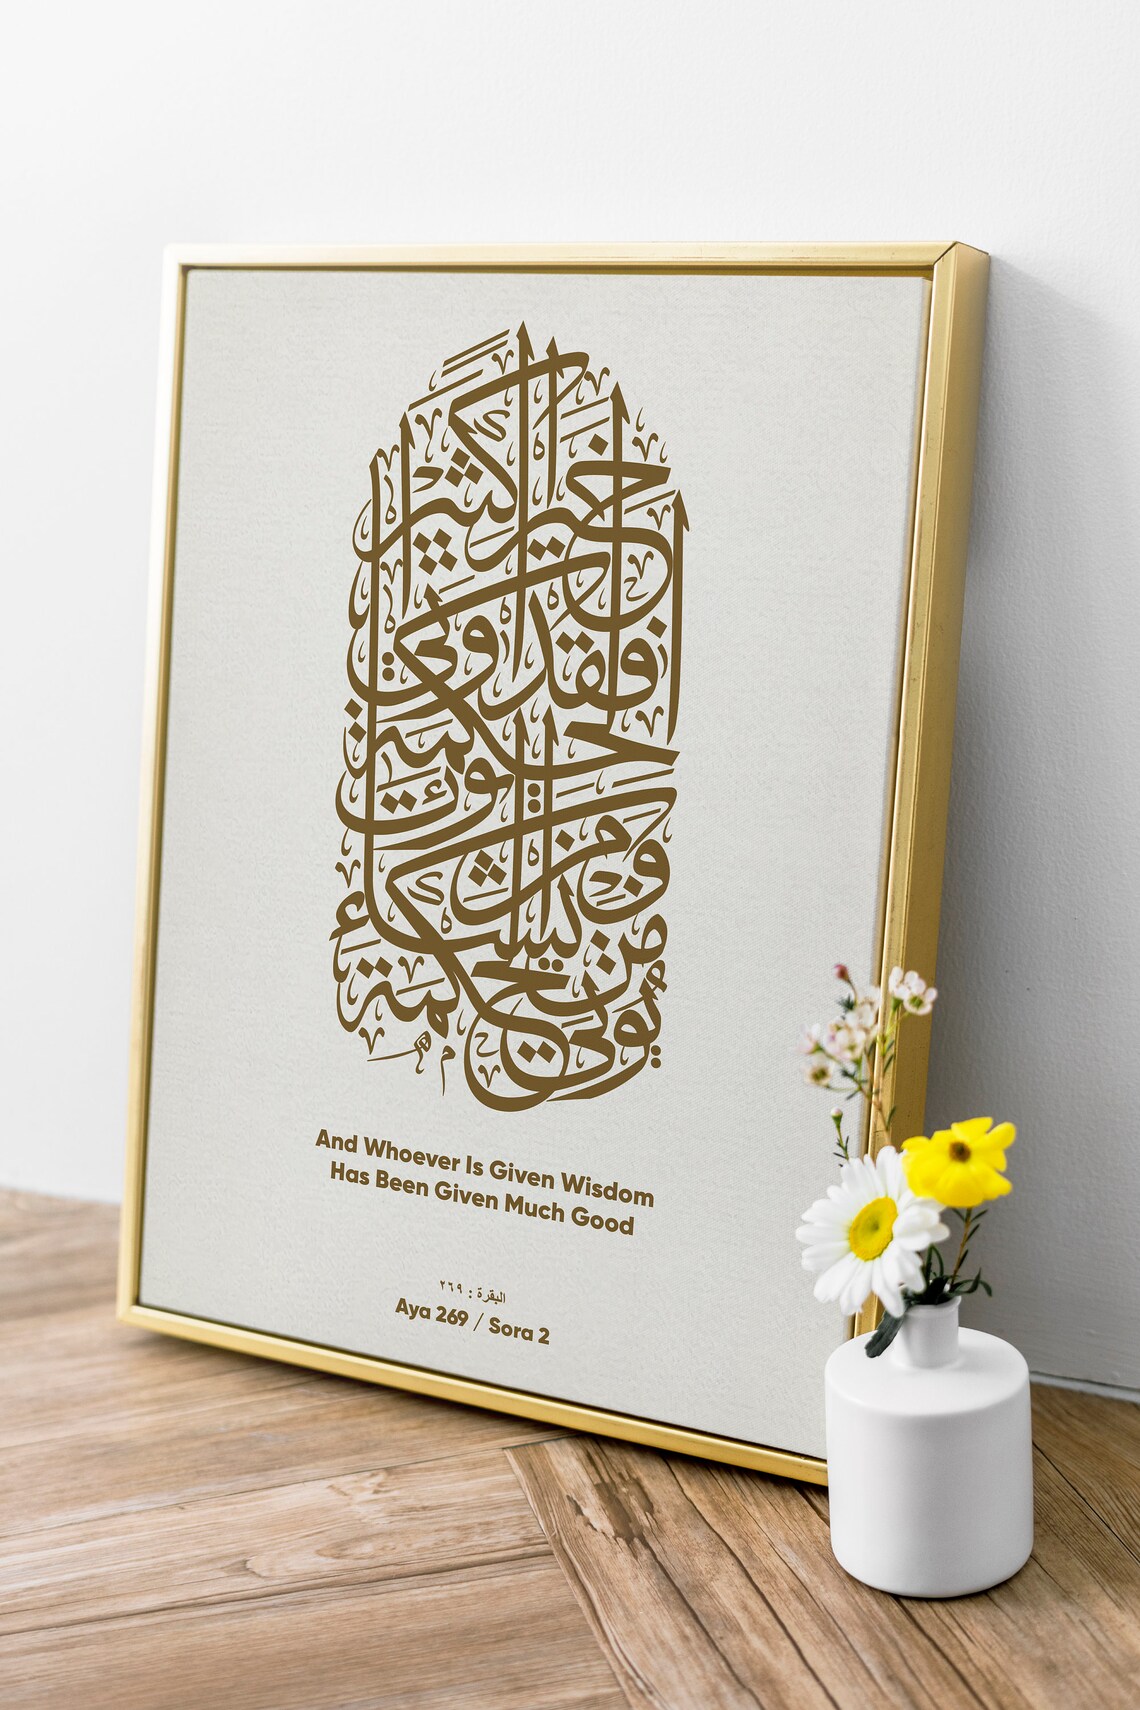 يُؤْتِي الْحِكْمَةَ
مَن يَشَاءُ
وَمَن يُؤْتَ
الْحِكْمَةَ
فَقَدْ أُوتِيَ
خَيْرًا كَثِيرًا
And Whoever Is Given Wisdom
Has Been Given Much Good
البقرة : ٢٦٩
Aya 269 / Sora 2